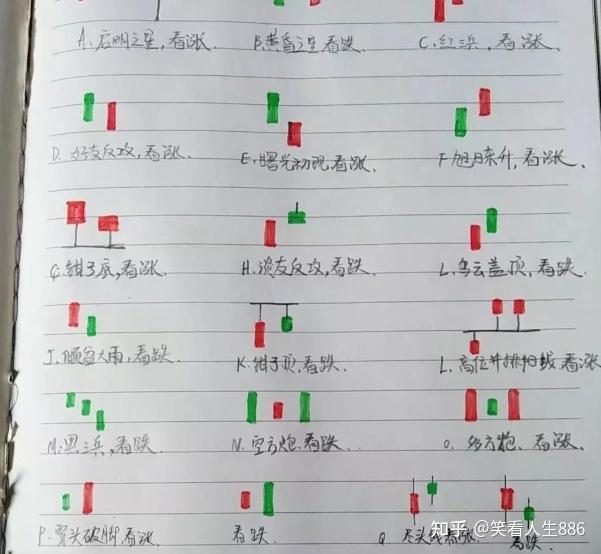 A、启明之星,看涨
B.黄昏之星看跌.
C.红三兵,看涨.
D.好友反攻,看涨、
E、曙光初现,看涨
F旭日东升,看涨、
G.钳子底,看涨、
H、淡友反攻,看跌、
L.乌云盖顶,看跌、
J.倾盆大雨,看跌.
K.钳子顶,看跌、
L.高位并排阳线,看涨
M.黑三兵,看跌.
N.空方炮.看跌、
O.多方炮、看涨、
P.穿头破脚看涨、
看跌、
Q 尽头线看涨、
看跌
知乎 @笑看人生886